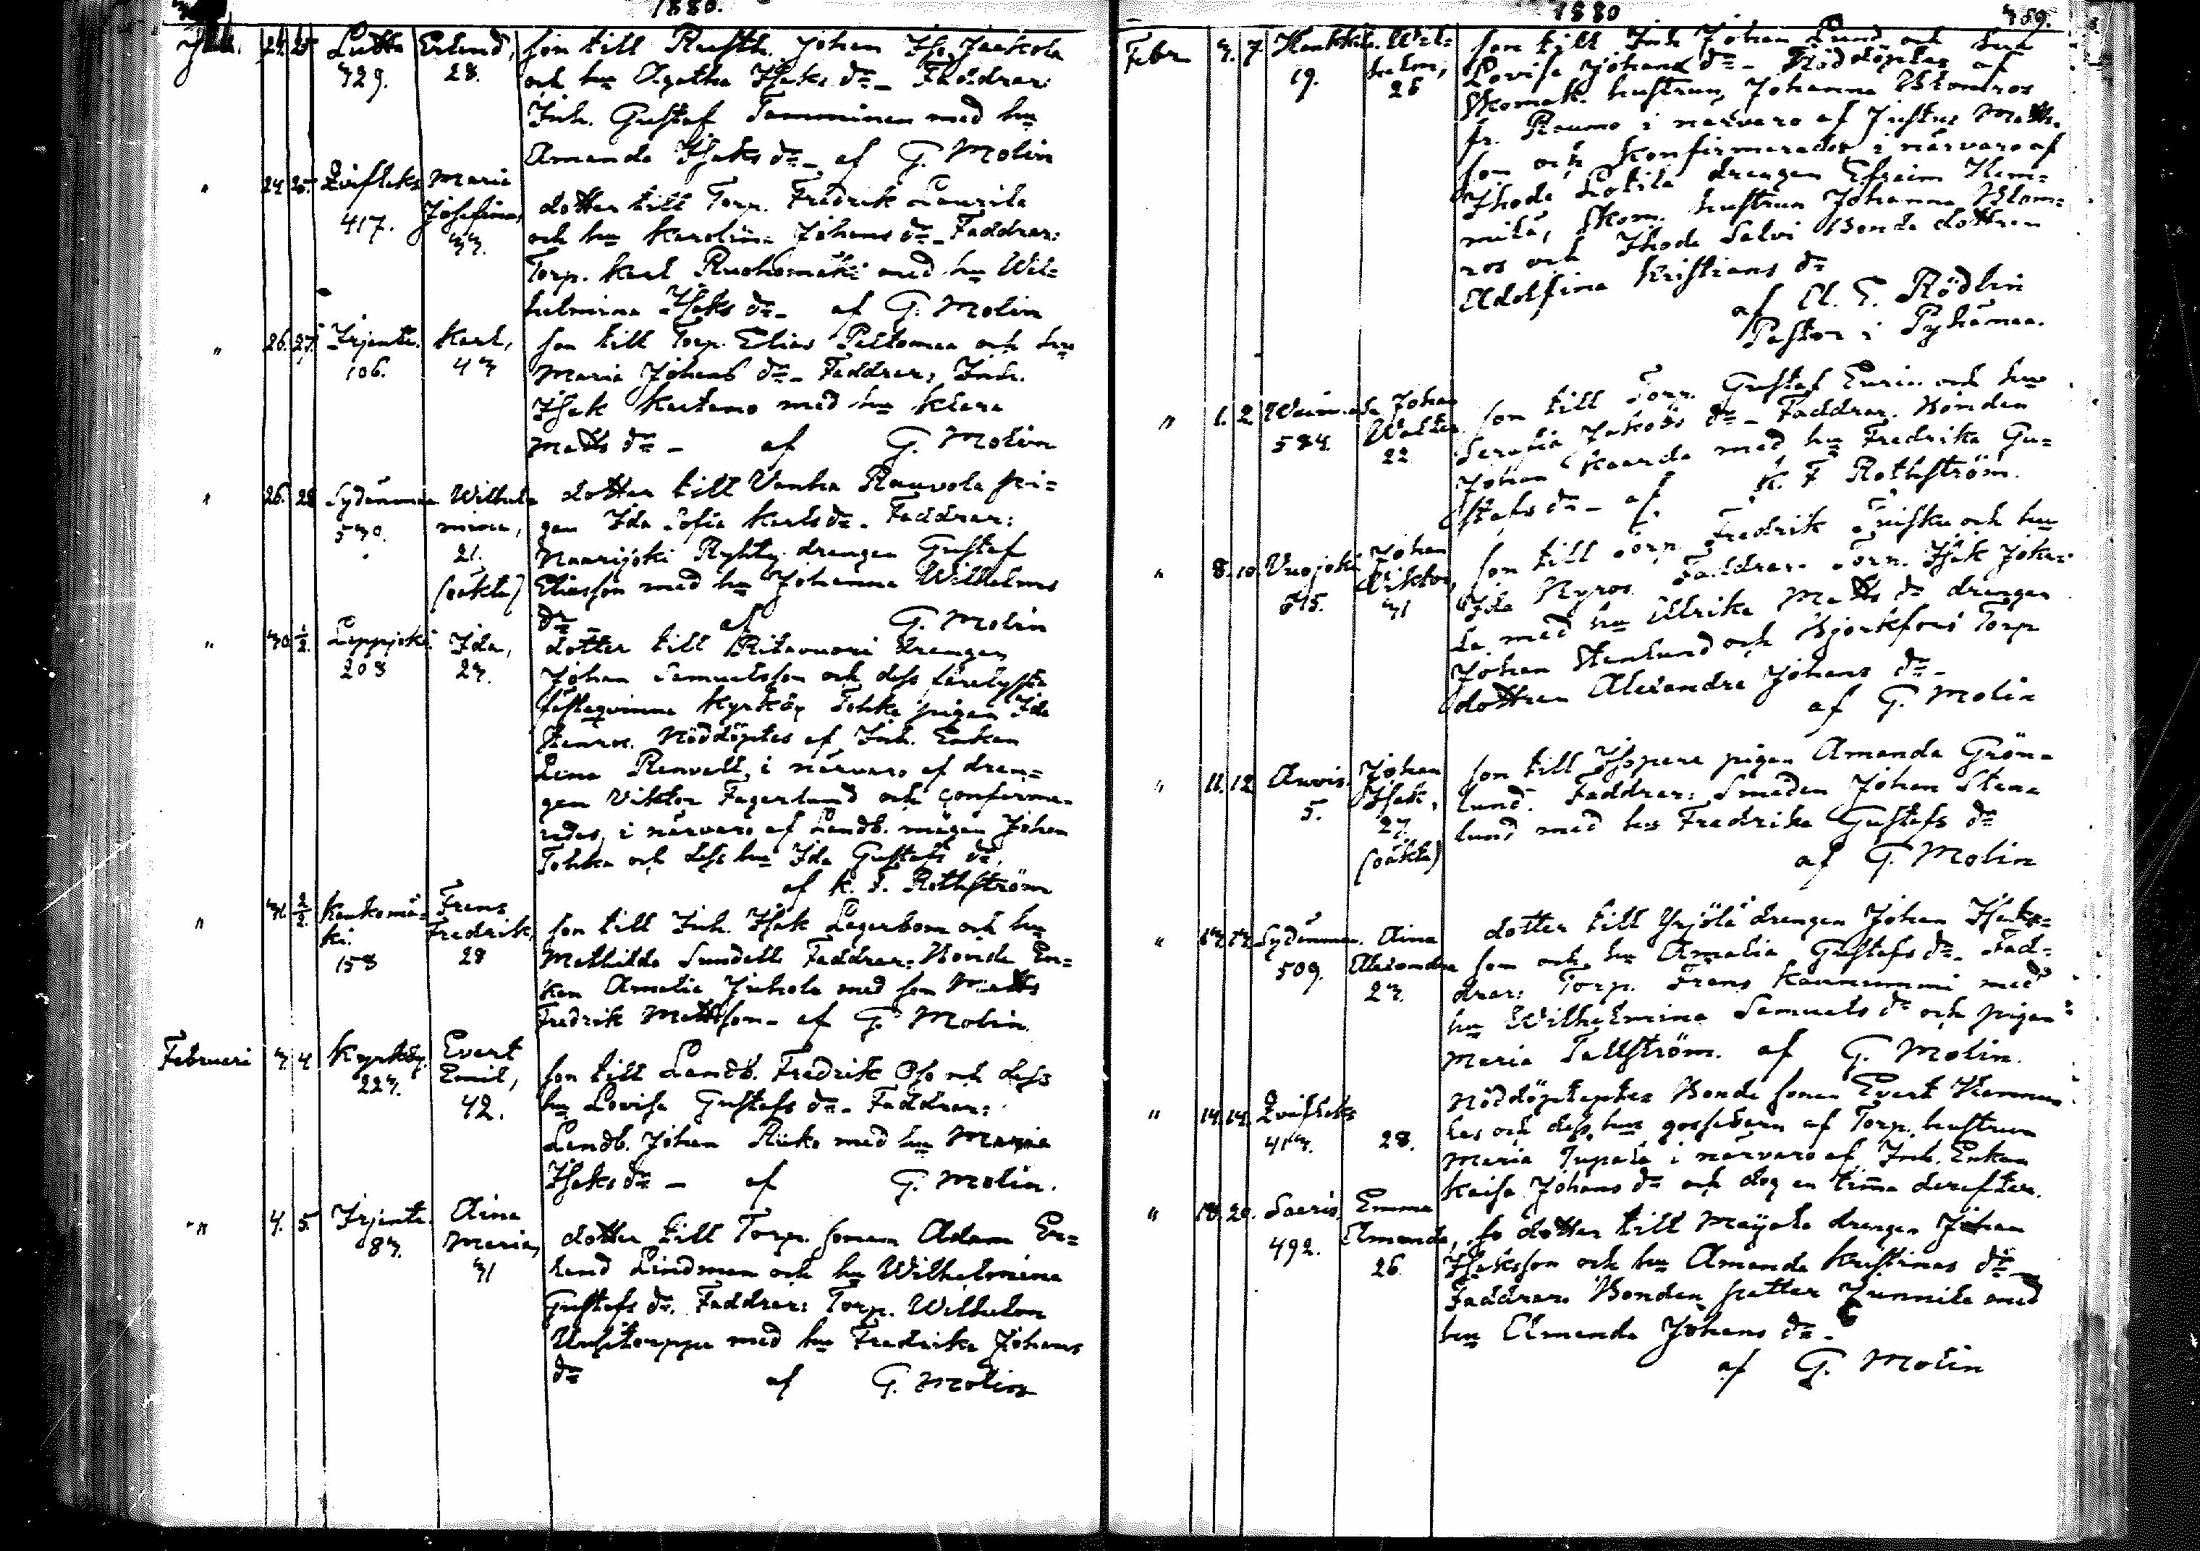 1880.
24. 25 Lutta Erlend, son till Rusth. Johan Jaakola
729. 28. och hu Agatha Isaks dr_ Faddrar:
Inh. Gustaf Tamminen med hu
Amanda Isaks dr_ af G. Molin
" 24 25 Maria
417. Josefina, dotter till Torp. Fredrik Laurila
33. och hu Karolina Johans dr_ Faddrar:
Torp. Karl Ruohomäki med hu Wil=
helmina Isaks dr_ af G. Molin
" 26. 27. Irjante. Karl, son till Torp. Elias Peltomaa och hu
106. 43 Maria Johans dr_ Faddrar, Inh.
Isak med hu Klara
Matts dr_ af G. Molin
" 26. 28 Sydänmaa Wilhel- dotter till Vanha Rauvola pi=
530. mina, gan Ida Sofia Karls dr_ Faddrar:
21. Naarijoki Ryhty drengen Gustaf
(oäkta) Eliasson med hu Johanna Wilhelms
dr_ af G. Molin
" 30 1/2 Lappijoki Ida, dotter till Ritavuori drengen
208 23. Johan Samuelsson och dess förelysta
fästeqvinna Kyrköy Tohka pigan Ida
Stenros. Nöddöptes af Inh. Enkan
Lena Renvall, i närvaro af dren=
gen Viktor Fagerlund och conferme-
redes, i närvaro af Landb. mågen Johan
Tohka och dess hu Ida Gustafs dr,
af K. F. Rothström
" 31 2/2 Kaukomä= Frans
ki. Fredrik son till Inh. Isak Lagerbom och hu
158 28 Mathilda Sundell Faddrar: Bonde En=
kan Amalia Juhola med son Matts
Fredrik Mattsson_ af G. Molin.
Februari 3 4 Kyrköy Evert
223. Emil, son till Landb. Fredrik och dess
42. hu Lovisa Gustafs dr_ Faddrar:
Landb. Johan med hu Maria
Isaks dr _ af G. Molin.
" 4. 5. Irjante. Aina
83. Maria, dotter till Torp. sonen Adam Er=
31 land Lindman och hu Wilhelmina
Gustafs dr. Faddrar: Torp. Wilhelm
Uusitorppa med hu Fredrika Johans
dr af G. Molin
1880 759.
Febr 3. 7. Wil= son till Inh Johan Lund och hu
19. helm, Lovisa Johans dr_ Nöddöptes af
26 Skomak. hustrun Johanna Blomros
fr. Raumo i närvaro af Justus Matts.
son och konfirmerades i närvaro af
Ihode Lotila drengen Efraim Hem=
milä, Skom. hustrun Johanna Blom=
ros och Ihode Salvi Bonde dottren
Adolfina Kristians dr
af A. E. Rödlin
Pastor i Pyhämaa.
" 1. 2 Johan son till Torp. Gustaf och hu
584. Walter Serafia Jakobs dr_ Faddrar. Bonden
22 Johan Kaarda med hu Fredrika Gu=
stafs dr_ af K. F Rothström.
" 8. 10. Vuojoki Johan son till Torp. Fredrik och hu
615. Viktor, Ida Nyros. Faddrar. Torp. Isak
31 la med hu Ulrika Matts dr drengen
Johan Stenlund och Björkfors Torp
dottren Alexandra Johans dr_
af G. Molin
" 11. 12 Auvis. Johan son till Ihspere pigan Amanda Grön=
5. Isak, lund. Faddrar: Smeden Johan Sten=
27. lund med hu Fredrika Gustafs dr
(oäkta) af G. Molin
" 13. Sydänmaa. Aina dotter till Yrjölä drengen Johan Isaks=
509. Alexandra son och hu Amalia Gustafs dr_ Fad=
23. drar: Torp. Frans Kaunummi med
hu Wilhelmina Samuels dr och pigan
Maria Tallström. af G. Molin.
" 14. 14. Nöddöptes Bonde sonen Evert
413. 28. las och dess hus gossebarn af Torp. hustrun
Maria Tupala i närvaro af Inh. Enkan
Kaisa Johans dr och dog en timma derefter.
" 18. 20. Saaris Emma
492. Amanda, dotter till drengen Johan
26. Isaksson och hu Amanda Kristinas dr
Faddrar. Bonden med
hu Amanda Johans dr_
af G. Molin